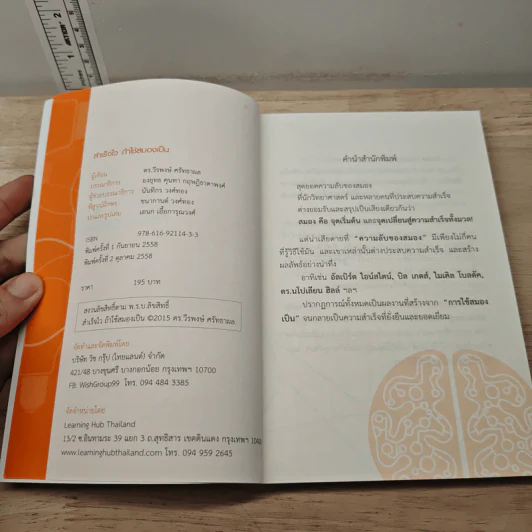 สำเร็จได้ ถ้าใช้สมองเป็น
ผู้เขียน ดร.วีรพงษ์ ศรัทธาผล
บรรณาธิการ ยงยุทธ
ผู้ช่วยบรรณาธิการ นันทิกร วงศ์ทอง
พิสูจน์อักษร ชนากานต์ วงศ์ทอง
ปกและรูปเล่ม เอนก เอื้อการุณวงศ์
ISBN 978-616-92114-3-3
พิมพ์ครั้งที่ 1 กันยายน 2558
พิมพ์ครั้งที่ 2 ตุลาคม 2558
ราคา 195 บาท
สงวนลิขสิทธิ์ตาม พ.ร.บ.ลิขสิทธิ์
สำเร็จได้ ถ้าใช้สมองเป็น ©2015 ดร.วีรพงษ์ ศรัทธาผล
จัดทำและจัดพิมพ์โดย
บริษัท วิช กรุ๊ป (ไทยแลนด์) จำกัด
421/48 บางขุนศรี บางกอกน้อย กรุงเทพฯ 10700
FB: WishGroup99 โทร. 094 484 3385
จัดจำหน่ายโดย
Learning Hub Thailand
13/2 ซ.อินทามระ 39 แยก 3 ถ.สุทธิสาร เขตดินแดง กรุงเทพฯ 10400
www.learninghubthailand.com โทร. 094 959 2645
คำนำสำนักพิมพ์
สุดยอดความลับของสมอง
ที่นักวิทยาศาสตร์ และหลายคนที่ประสบความสำเร็จ
ต่างยอมรับและสรุปเป็นเสียงเดียวกันว่า
สมอง คือ จุดเริ่มต้น และจุดเปลี่ยนสู่ความสำเร็จทั้งมวล!
แต่น่าเสียดายที่ "ความลับของสมอง" มีเพียงไม่กี่คน
ที่รู้วิธีใช้มัน และเขาเหล่านั้นต่างประสบความสำเร็จ และสร้าง
ผลลัพธ์อย่างน่าทึ่ง
อาทิเช่น อัลเบิร์ต ไอน์สไตน์, บิล เกตส์, ไมเคิล โบลดัค,
ดร.นโปเลียน ฮิลล์ ฯลฯ
ปรากฏการณ์ทั้งหมดเป็นผลงานที่สร้างจาก "การใช้สมอง
เป็น" จนกลายเป็นความสำเร็จที่ยั่งยืนและยอดเยี่ยม